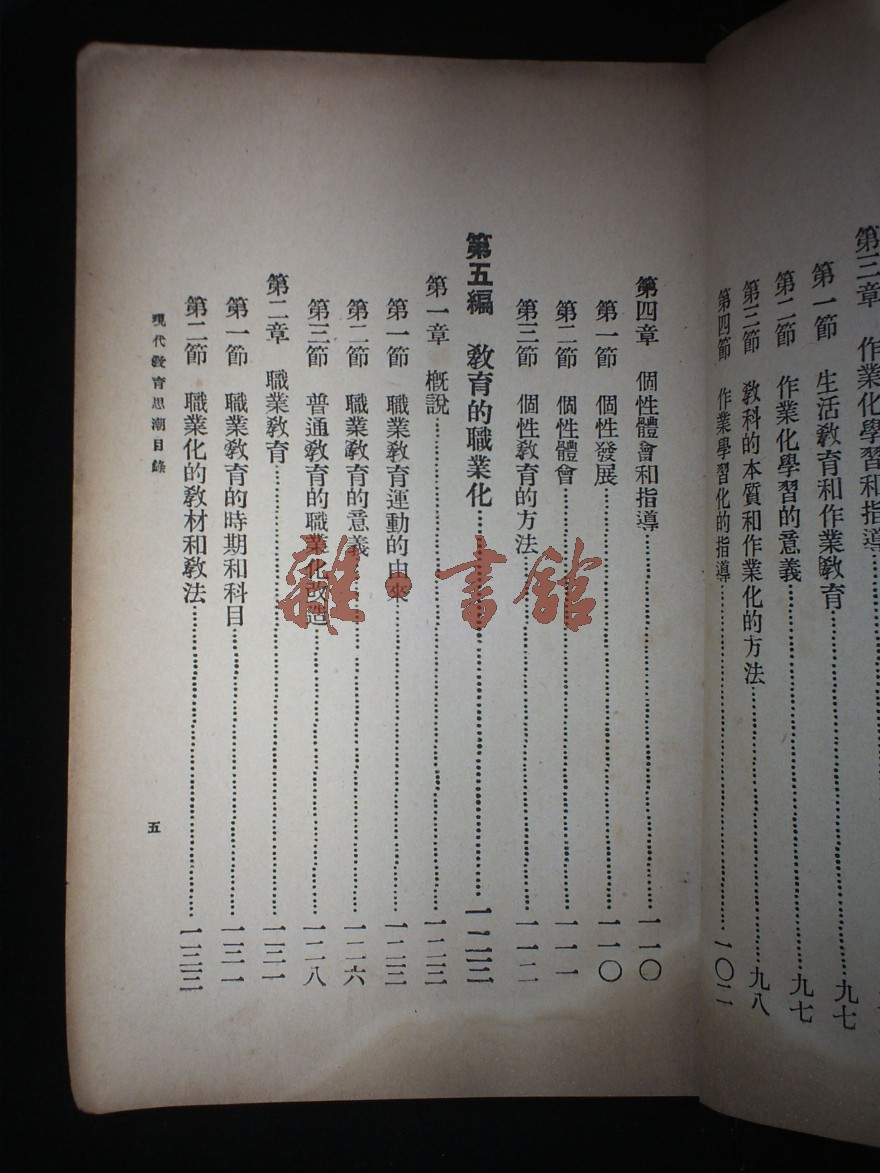 第三章　作業化學習和指導
第一節　生活教育和作業教育……九七
第二節　作業化學習的意義……九七
第三節　教科的本質和作業化的方法……九八
第四節　作業學習化的指導……一〇二
第四章　個性體會和指導……一一〇
第一節　個性發展……一一〇
第二節　個性體會……一一一
第三節　個性教育的方法……一一二
第五編　教育的職業化……一二三
第一章　概說……一二三
第一節　職業教育運動的由來……一二三
第二節　職業教育的意義……一二六
第三節　普通教育的職業化改造……一二八
第二章　職業教育……一三一
第一節　職業教育的時期和科目……一三一
第二節　職業化的教材和教法……一三三
現代教育思潮目錄
五
雜·書館